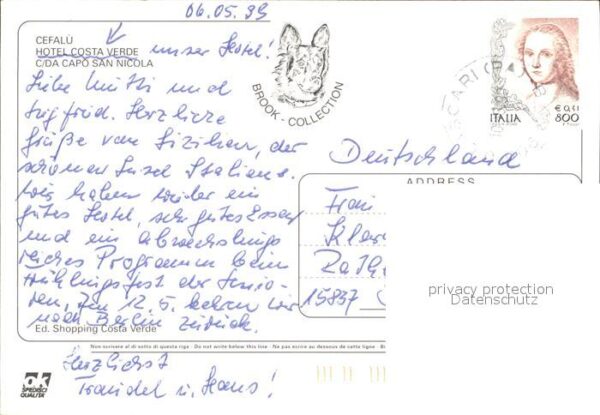 06.05.99
CEFALÙ
HOTEL COSTA VERDE
unser Hotel!
C/DA CAPO SAN NICOLA
BROOK - COLLECTION
ITALIA
€ 0,41
800
Liebe Mutti und
Sigfried. Herzliche
Grüße von Sizilien, der
schönen Insel Italiens.
Wir haben wieder ein
gutes Hotel, sehr gutes Essen
und ein abwechslungs
reiches Programm beim
Frühlingsfest der Senio-
ren, am 12.5. kehren wir
nach Berlin zurück.
Ed. Shopping Costa Verde
Non scrivere al di sotto di questa riga - Do not write below this line - Ne pas ecrire au dessous de cette ligne -
Herzlichst
Traudel u. Hans!
Deutschland
ADDRESS
Frau
15837
privacy protection
Datenschutz
ok
SPEDISCI
QUALITA'